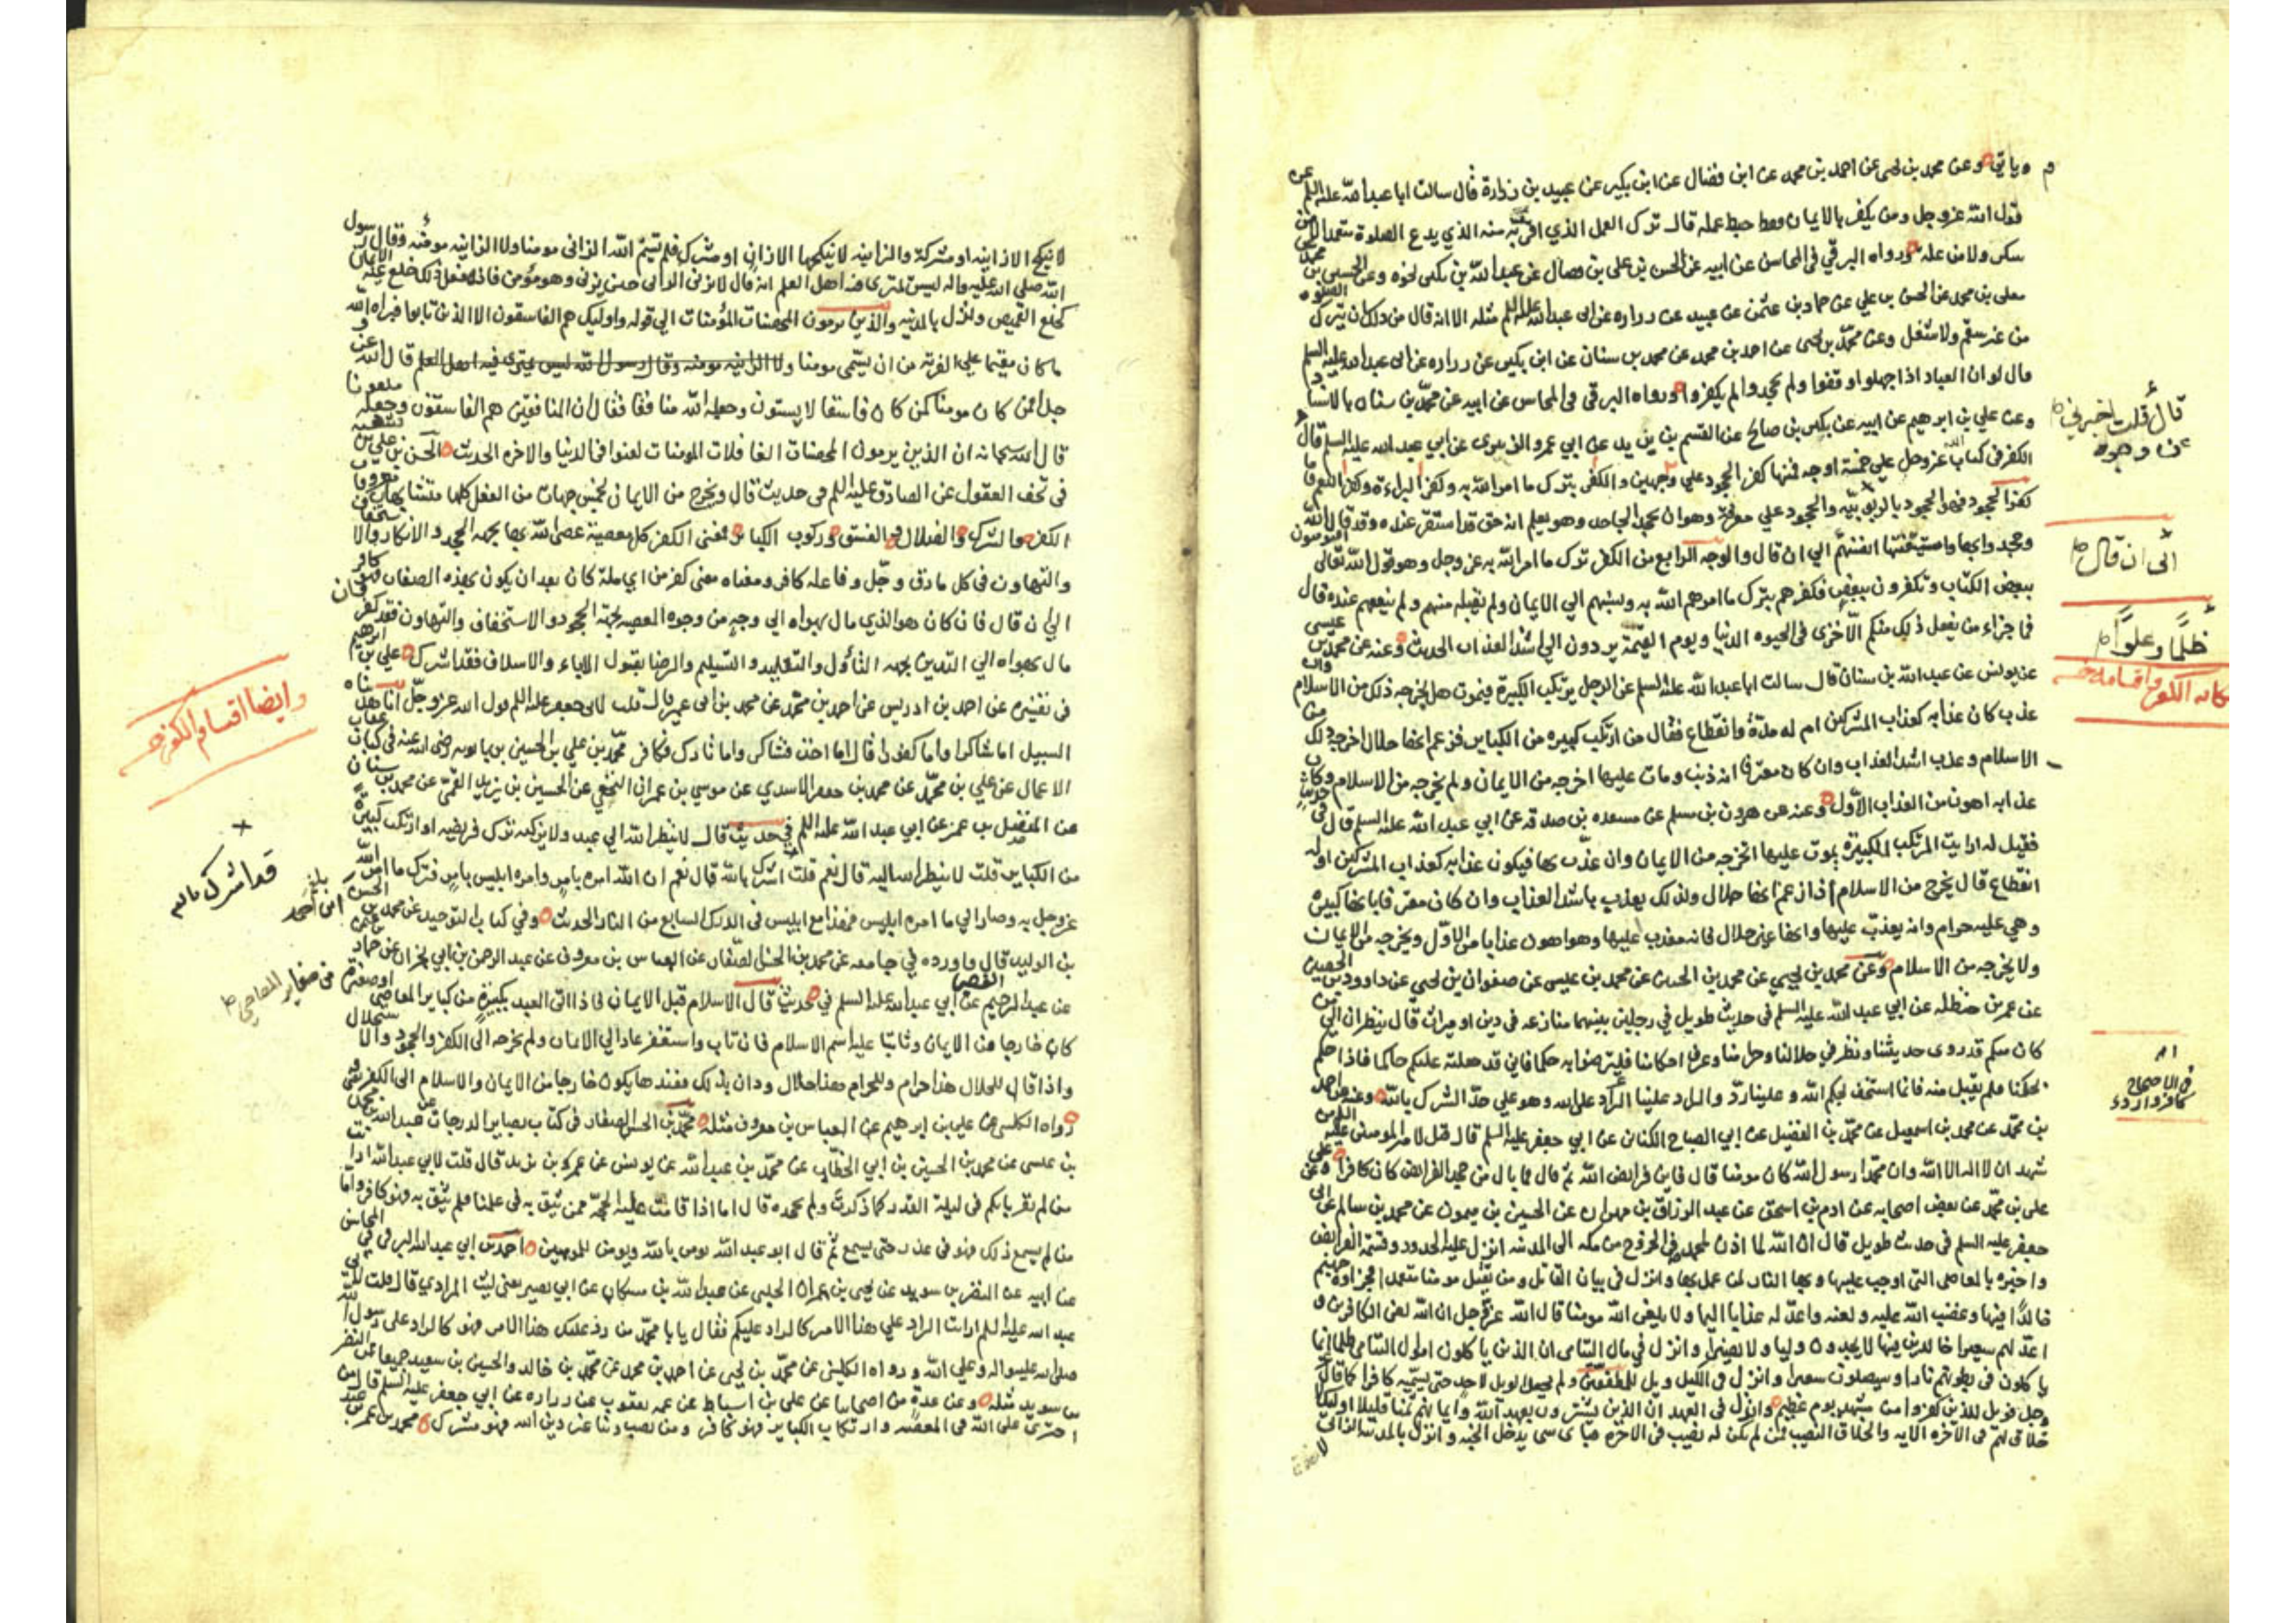 وياتي وعن محمد بن يحيى عن احمد بن محمد عن ابن فضال عن ابن بكير عن عبيد بن زرارة قال سالت ابا عبد الله عليه السلم عن
قول الله عزوجل ومن يكفر بالايمان فقط حبط عمله قال ترك العمل الذي اقر به منه الذي يدع الصلوة متعمدا لا من
سكر ولا من علة ورواه البرقي في المحاسن عن ابيه عن الحسن بن علي بن فضال عن عبد الله بن بكير نحوه وعن الحسين بن محمد عن
معلى بن محمد عن الحسن بن علي عن حماد بن عثمن عن عبيد عن زراره عن ابى عبد الله عليه السلم مثله الا انه قال من ذلك ان يترك الصلوة
من غير سقم ولا شغل وعن محمد بن يحيى عن احمد بن محمد عن محمد بن سنان عن ابن بكير عن زراره عن ابى عبد الله عليه السلم
قال لو ان العباد اذا جهلوا وقفوا ولم يجحدوا لم يكفروا ورواه البرقي في المحاسن عن ابيه عن محمد بن سنان بالاسناد
وعن علي بن ابرهيم عن ابيه عن بكر بن صالح عن القسم بن يزيد عن ابي عمرو الزبيرى عن ابي عبد الله عليه السلم قال
قال قلت اخبرني
عن وجوه
الكفر فى كتاب الله عزوجل قال الكفر على خمسة اوجه فمنها كفر الجحود على وجهين والكفر بترك ما امر الله به وكفر البراءة وكفر النعم فاما
كفر الجحود فهو الجحود بالربوبيه والجحود على معرفة وهو ان يجحد الجاحد وهو يعلم انه حق قد استقر عنده وقد قال الله
وجحدوا بها واستيقنتها انفسهم الى ان قال والوجه الرابع من الكفر ترك ما امر الله به عز وجل وهو قول الله تعالى افتومنون
الى ان قال
ظلما وعلوا
ببعض الكتاب وتكفرون ببعض فكفرهم بترك ما امرهم الله به ونسبهم الى الايمان ولم يقبله منهم ولم ينفعهم عنده قال
فما جزاء من يفعل ذلك منكم الا خزى فى الحيوه الدنيا ويوم القيمة يردون الى اشد العذاب الحديث وعنه عن محمد بن عيسى
عن يونس عن عبد الله بن سنان قال سالت ابا عبد الله عليه السلم عن الرجل يرتكب الكبيرة فيموت هل يخرجه ذلك من الاسلام وان
عذب كان عذابه كعذاب المشركين ام له مدة وانقطاع فقال من ارتكب كبيره من الكباير فزعم انها حلال اخرجه ذلك من
الاسلام وعذب اشد العذاب وان كان معترفا انه ذنب ومات عليها اخرجه من الايمان ولم يخرجه من الاسلام وكان
عذابه اهون من العذاب الاول وعنه عن هرون بن مسلم عن مسعده بن صدقه عن ابي عبد الله عليه السلم قال في حديث
فقيل له ارايت المرتكب للكبيرة يموت عليها اتخرجه من الايمان وان عذب بها فيكون عذابه كعذاب المشركين اوله
انقطاع قال يخرج من الاسلام اذا زعم انها حلال ولذلك يعذب باشد العذاب وان كان معترفا بانها كبيره
وهي عليه حرام وانه يعذب عليها وانها غير حلال فانه معذب عليها وهو اهون عذابا من الاول ويخرجه من الايمان
ولا يخرجه من الاسلام وعن محمد بن يحيي عن محمد بن الحسن عن محمد بن عيسى عن صفوان بن يحيي عن داوود بن الحصين
عن عمر بن حنظله عن ابي عبد الله عليه السلم في حديث طويل في رجلين بينهما منازعه في دين او ميراث قال ينظران الى من
كان منكم قد روى حديثنا ونظر في حلالنا وحرامنا وعرف احكامنا فليرضوا به حكما فاني قد جعلته عليكم حاكما فاذا حكم
بحكمنا فلم يقبل منه فانما استخف بحكم الله وعلينا رد والراد علينا الراد على الله وهو على حد الشرك بالله وعنه عن احمد
بن محمد عن محمد بن اسمعيل عن محمد بن الفضيل عن ابي الصباح الكناني عن ابي جعفر عليه السلم قال قيل لامير المومنين عليه السلم من
شهد ان لا اله الا الله وان محمدا رسول الله كان مومنا قال فاين فرايض الله ثم قال فما بال من جحد الفرايض كان كافرا وعن
على بن محمد عن بعض اصحابه عن ادم بن اسحق عن عبد الرزاق بن مهران عن الحسين بن ميمون عن محمد بن سالم عن ابى
جعفر عليه السلم فى حديث طويل قال ان الله لما اذن لمحمد فى الخروج من مكه الى المدينه انزل عليه الحدود وقسمة الفرايض
واخبره بالمعاصى التى اوجب عليها وبها النار لمن عمل بها وانزل فى بيان القاتل ومن يقتل مومنا متعمدا فجزاوه جهنم
خالدا فيها وغضب الله عليه ولعنه واعد له عذابا اليما ولا يلعن الله مومنا قال الله عزوجل ان الله لعن الكافرين و
اعد لهم سعيرا خالدين فيها لا يجدون وليا ولا نصيرا وانزل في مال اليتامى ان الذين ياكلون اموال اليتامى ظلما انما
ياكلون فى بطونهم نارا وسيصلون سعيرا وانزل فى الكيل ويل للمطففين ولم يجعل الويل لاحد حتى يسميه كافرا كما قال عز
وجل فويل للذين كفروا من مشهد يوم عظيم وانزل فى العهد ان الذين يشترون بعهد الله وايمانهم ثمنا قليلا اوليك لا
خلاق لهم فى الاخره الايه والخلاق النصيب فمن لم يكن له نصيب فى الاخره فباى شى يدخل الجنه وانزل بالمدينه الزانى
لا ينكح الا زانيه او مشركة والزانيه لا ينكحها الا زان او مشرك فلم يسم الله الزانى مومنا ولا الزانيه مومنه وقال رسول
الله صلى الله عليه واله ليس يمترى فيه اهل العلم انه قال لا يزنى الزانى حين يزنى وهو مؤمن فانه اذا فعل ذلك خلع عنه الايمان
كخلع القميص ونزل بالمدينه والذين يرمون المحصنات المؤمنات الى قوله واوليك هم الفاسقون الا الذين تابوا فبراه الله
ما كان مقيما على الفرية من ان يسمى مومنا ولا الزانيه مومنه وقال رسول الله ليس يمترى فيه اهل العلم قال الله عز و
جل افمن كان مومنا كمن كان فاسقا لا يستون وجعله الله منافقا فقال ان المنافقين هم الفاسقون وجعله ملعونا
قال الله سبحانه ان الذين يرمون المحصنات الغافلات المومنات لعنوا فى الدنيا والاخره الحديث الحسن بن على بن شعبه
فى تحف العقول عن الصادق عليه السلم فى حديث قال ويخرج من الايمان بخمس جهات من الفعل كلها متشابهات معروفات
الكفر والشرك والضلال والفسق وركوب الكباير فمعنى الكفر كل معصية عصى الله بها بجهه الجحد والانكار والاستخفاف
والتهاون فى كل ما دق وجل وفاعله كافر ومعناه معنى كفر من اي ملة كان بعد ان يكون بهذه الصفات فهو كافر
الى ان قال فان كان هو الذي مال بهواه الى وجه من وجوه المعصيه لجهة الجحود والاستخفاف والتهاون فقد كفر وان
مال بهواه الى التدين بجهه التأول والتقليد والتسليم والرضا بقول الاباء والاسلاف فقد اشرك علي بن ابرهيم
وايضا اقسام الكفر
فى تفسيره عن احمد بن ادريس عن احمد بن محمد عن محمد بن ابى عمير قال قلت لابى جعفر عليه السلم قول الله عز وجل انا هديناه
السبيل اما شاكرا واما كفورا قال اما اخذ فشاكر واما تارك فكافر محمد بن علي بن الحسين بن بابويه رضى الله عنه فى كتاب عقاب
الاعمال عن علي بن محمد عن محمد بن جعفر الاسدي عن موسي بن عمران النخعي عن الحسين بن يزيد القمي عن محمد بن سنان
عن المفضل بن عمر عن ابي عبد الله عليه السلم في حديث قال لا ينظر الله الى عبد ولا يزكيه ترك فريضه او ارتكب كبيرة
من الكباير قلت لا ينظر الله اليه قال نعم قلت اشرك بالله قال نعم ان الله امره بامر وامره ابليس بامر فترك ما امر الله
قد اشرك بالله
عزوجل به وصار الى ما امره ابليس فهذا مع ابليس في الدرك السابع من النار الحديث وفي كتاب التوحيد عن محمد بن الحسن
ابن احمد
بن الوليد قال فاورده في جامعه عن محمد بن الحسن الصفار عن العباس بن معروف عن عبد الرحمن بن ابي نجران عن حماد بن عثمن
عن عبد الرحيم القصير عن ابي عبد الله عليه السلم في حديث قال الاسلام قبل الايمان فاذا اتى العبد بكبيرة من كباير المعاصى
او صغيرة من صغاير المعاصي
كان خارجا من الايمان وثابتا عليه اسم الاسلام فان تاب واستغفر عاد الى الايمان ولم يخرجه الى الكفر والجحود والاستحلال
واذا قال للحلال هذا حرام وللحرام هذا حلال ودان بذلك فعندها يكون خارجا من الايمان والاسلام الى الكفر
ورواه الكلينى عن على بن ابرهيم عن العباس بن معروف مثله محمد بن الحسن الصفار فى كتاب بصاير الدرجات عن عبد الله بن محمد
بن عيسى عن محمد بن الحسين بن ابي الخطاب عن محمد بن عبد الله عن يونس عن عمر بن يزيد قال قلت لابي عبد الله ارايت
من لم يقر بانكم فى ليلة القدر كما ذكرت ولم يجحده قال اما اذا قامت عليه الحجة ممن يثق به فى علمنا فلم يثق به فهو كافر واما
من لم يسمع ذلك فهو فى عذر حتى يسمع ثم قال ابو عبد الله يومن بالله ويومن للمومنين احمد بن ابي عبد الله البرقى فى المحاسن
عن ابيه عن النضر بن سويد عن يحيى بن عمران الحلبي عن عبد الله بن مسكان عن ابي بصير يعنى ليث المرادي قال قلت لابى
عبد الله عليه السلم ارايت الراد علي هذا الامر كالراد عليكم فقال يا با محمد من رد عليك هذا الامر فهو كالراد على رسول الله
صلى الله عليه واله وعلى الله ورواه الكليني عن محمد بن يحيى عن احمد بن محمد عن محمد بن خالد والحسين بن سعيد جميعا عن النضر
بن سويد مثله وعن عدة من اصحابنا عن على بن اسباط عن عمه يعقوب عن زراره عن ابي جعفر عليه السلم قال من
اجترى على الله فى المعصيه وارتكاب الكباير فهو كافر ومن نصب دينا غير دين الله فهو مشرك محمد بن عمر بن عبد